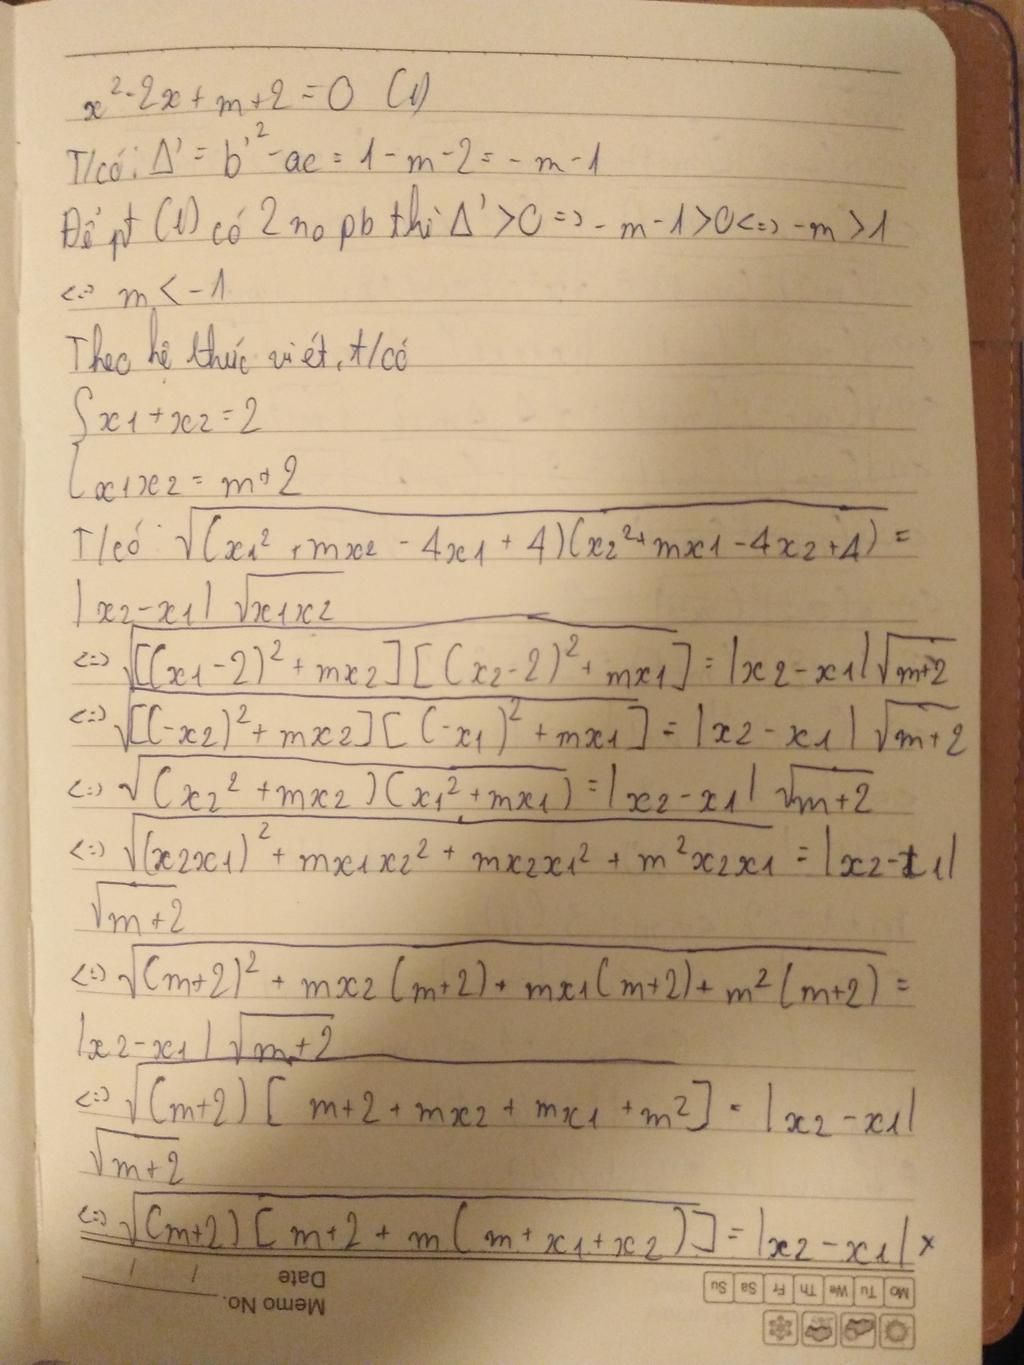 x² - 2x + m + 2 = 0 (1)
T/có: Δ' = b'² - ac = 1 - m - 2 = - m - 1
Để pt (1) có 2 no pb thì Δ' > 0 => - m - 1 > 0 <=> -m > 1
<=> m < -1
Theo hệ thức viét, t/có
{ x1 + x2 = 2
x1x2 = m + 2
T/có √(x1² + mx2 - 4x1 + 4)(x2² + mx1 - 4x2 + 4) =
|x2 - x1| √x1x2
<=> √[(x1 - 2)² + mx2][(x2 - 2)² + mx1] = |x2 - x1| √m+2
<=> √[(-x2)² + mx2][(-x1)² + mx1] = |x2 - x1| √m+2
<=> √(x2² + mx2)(x1² + mx1) = |x2 - x1| √m+2
<=> √(x2x1)² + mx1x2² + mx2x1² + m²x2x1 = |x2 - x1|
√m+2
<=> √(m+2)² + mx2(m+2) + mx1(m+2) + m²(m+2) =
|x2 - x1| √m+2
<=> √(m+2)[m+2 + mx2 + mx1 + m²] = |x2 - x1|
√m+2
<=> √(m+2)[m+2 + m(m + x1 + x2)] = |x2 - x1| x
Memo No.
Date / /
Mo Tu We Th Fr Sa Su